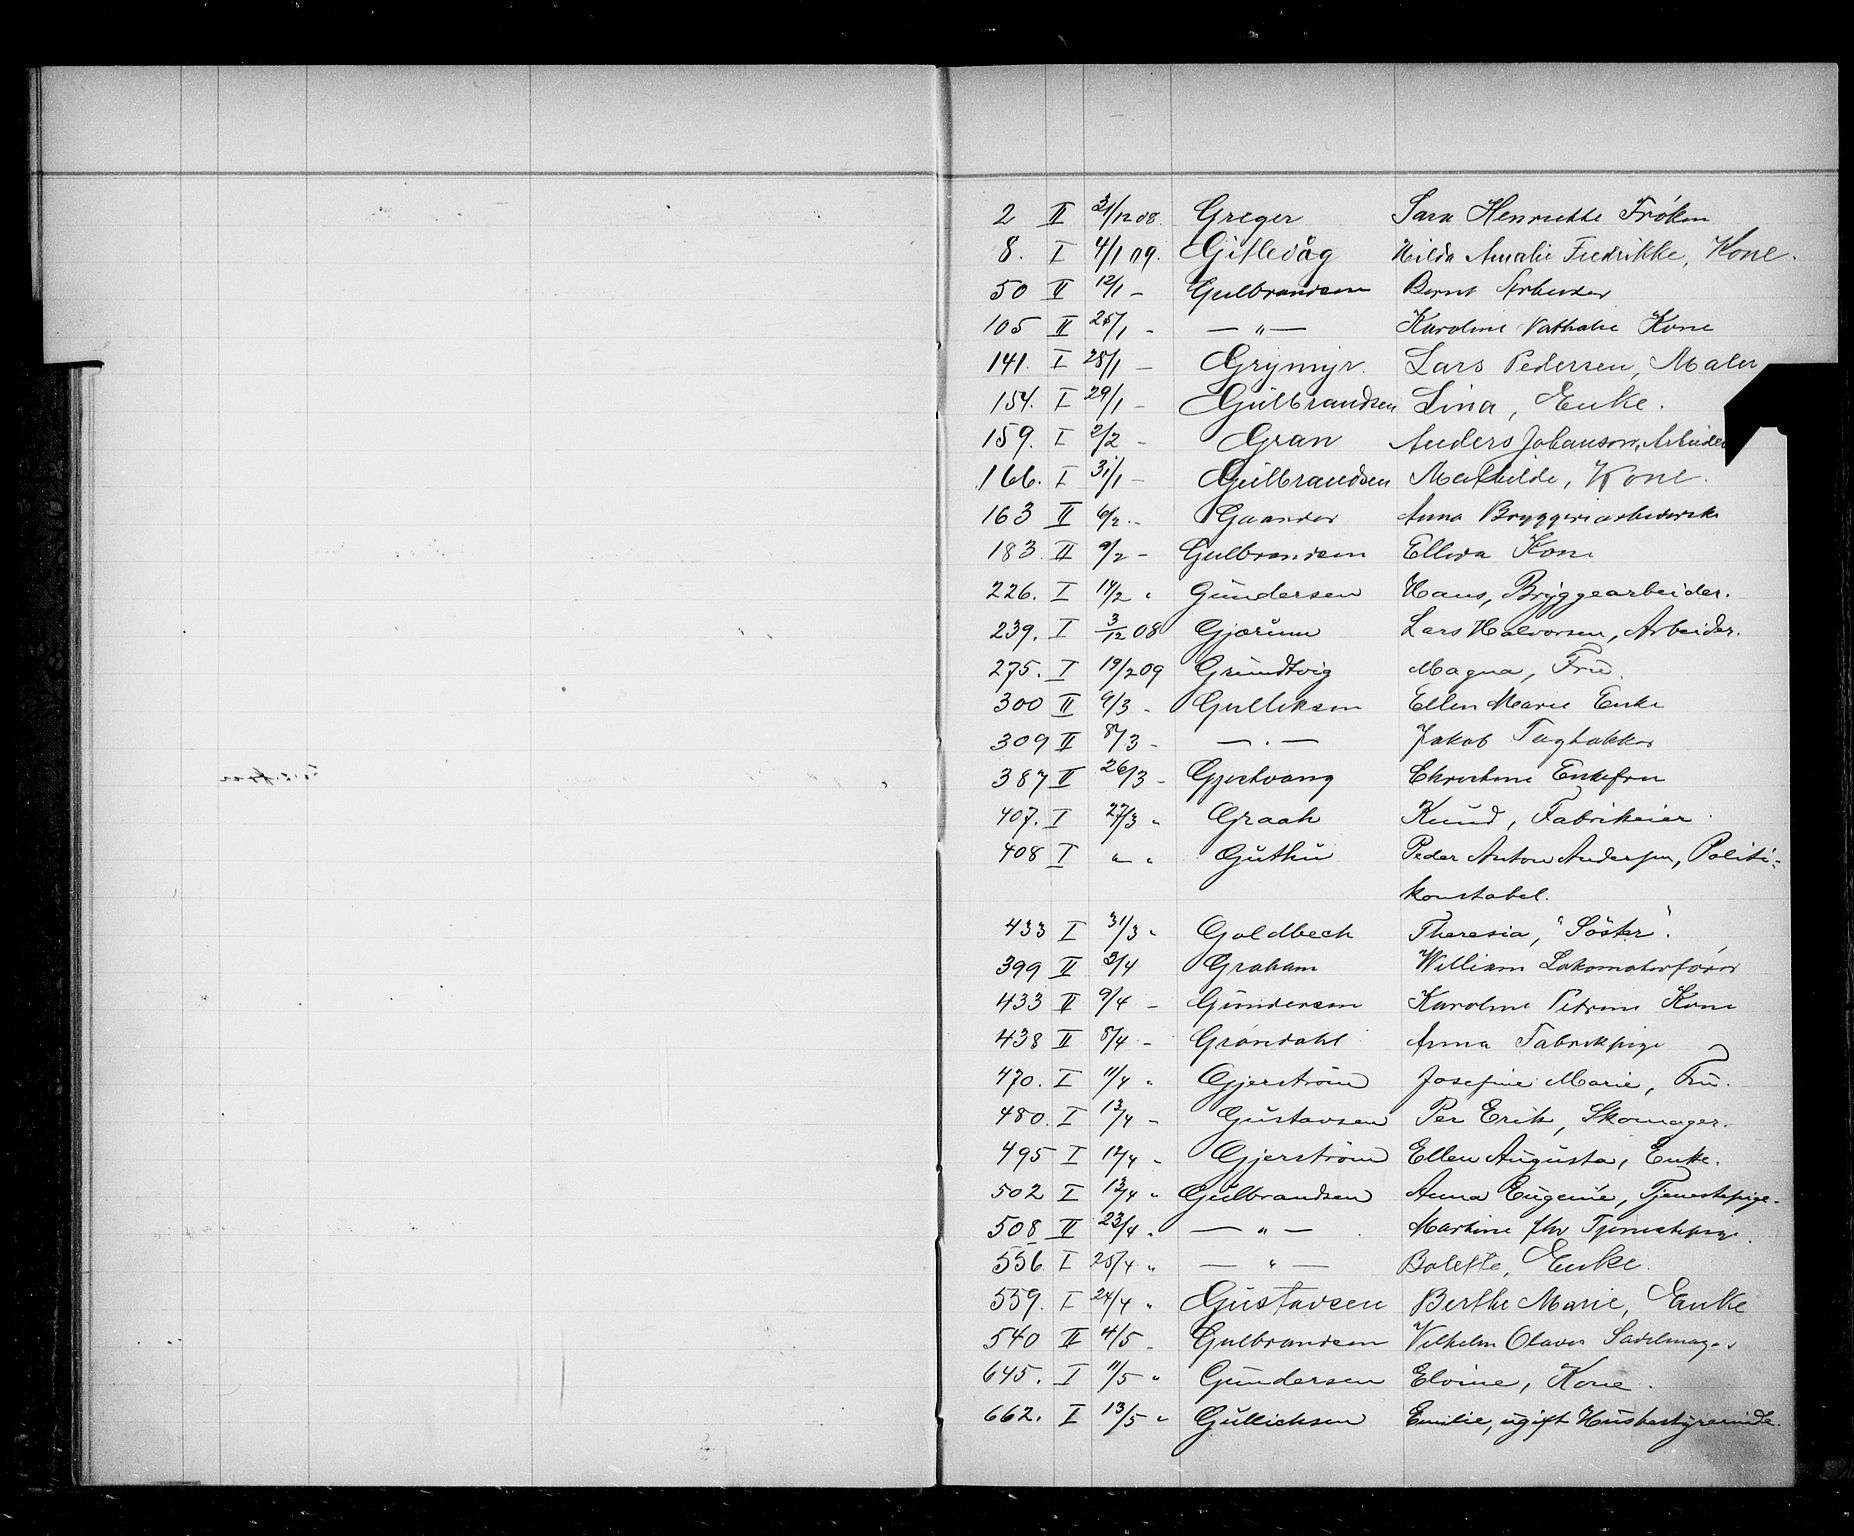 2 II 31/12 08. Greger Sara Henriette Frøken
8. I 4/1 09. Gitlevåg Hilda Amalie Fredrikke, Kone.
50 II 12/1 - Gulbrandsen Bernt Arbeider
105 II 25/1 - — " — Karoline Nathalie Kone
141. I 28/1 - Grymyr. Lars Pedersen, Maler
154. I 29/1 - Gulbrandsen Lina, Enke.
159. I 2/2 - Gran Anders Johanson, Arbeider
166. I 31/1 - Gulbrandsen Mathilde, Kone.
163 II 6/2 - Gaarder Anna Bryggeriarbeiderske
183 II 9/2 - Gulbrandsen Ellida Kone
226. I 14/2 " Gundersen Hans, Bryggearbeider.
239. I 3/12 08 Gjærum Lars Halvorsen, Arbeider.
275. I 19/2 09 Grundtvig Magna, Fru.
300 II 9/3 - Gulliksen Ellen Marie Enke
309 II 8/3 - — . — Jakob Tagtækker
387 II 26/3 - Gjestvang Christine Enkefru
407. I 27/3 " Graah Knud, Fabrikeier.
408 I " " Guthu Peder Anton Andersen, Politi-
konstabel.
433 I 31/3 " Goldbech Theresia, "Söster".
399 II 3/4 Graham William Lokomotivfører
433 II 9/4 - Gundersen Karoline Petrine Kone
438 II 8/4 - Grøndahl Anna Fabrikpige
470. I 11/4 " Gjerström Josefine Marie, Fru.
480. I 13/4 - Gustavsen Per Erik, Skomager.
495 I 12/4 - Gjerström Ellen Augusta, Enke.
502 I 13/4 " Gulbrandsen Anna Eugenie, Tjenestepige.
508 II 23/4 " — " — Martine fhv Tjenestepige.
556. I 25/4 " — " — Bolette, Enke.
559. I 24/4 " Gustavsen Berthe Marie, Enke
540 II 4/5 - Gulbrandsen Vilhelm Olaves Sadelmager
645. I 11/5 " Gundersen Elvine, Kone.
662. I 13/5 " Gullichsen Emilie, ugift Husbestyrerinde.